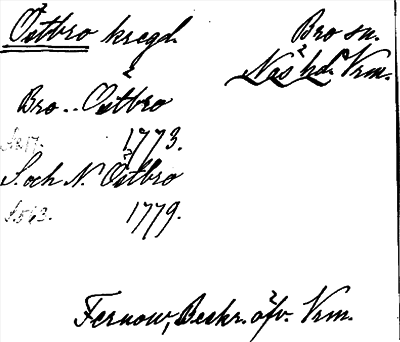 Östbro kregd.
Bro sn.
Näs hd. Vrm.
Bro .. Östbro
s. 217. 1773.
S. och N. Östbro
s. 563. 1779.
Fernow, Beskr. öfv. Vrm.